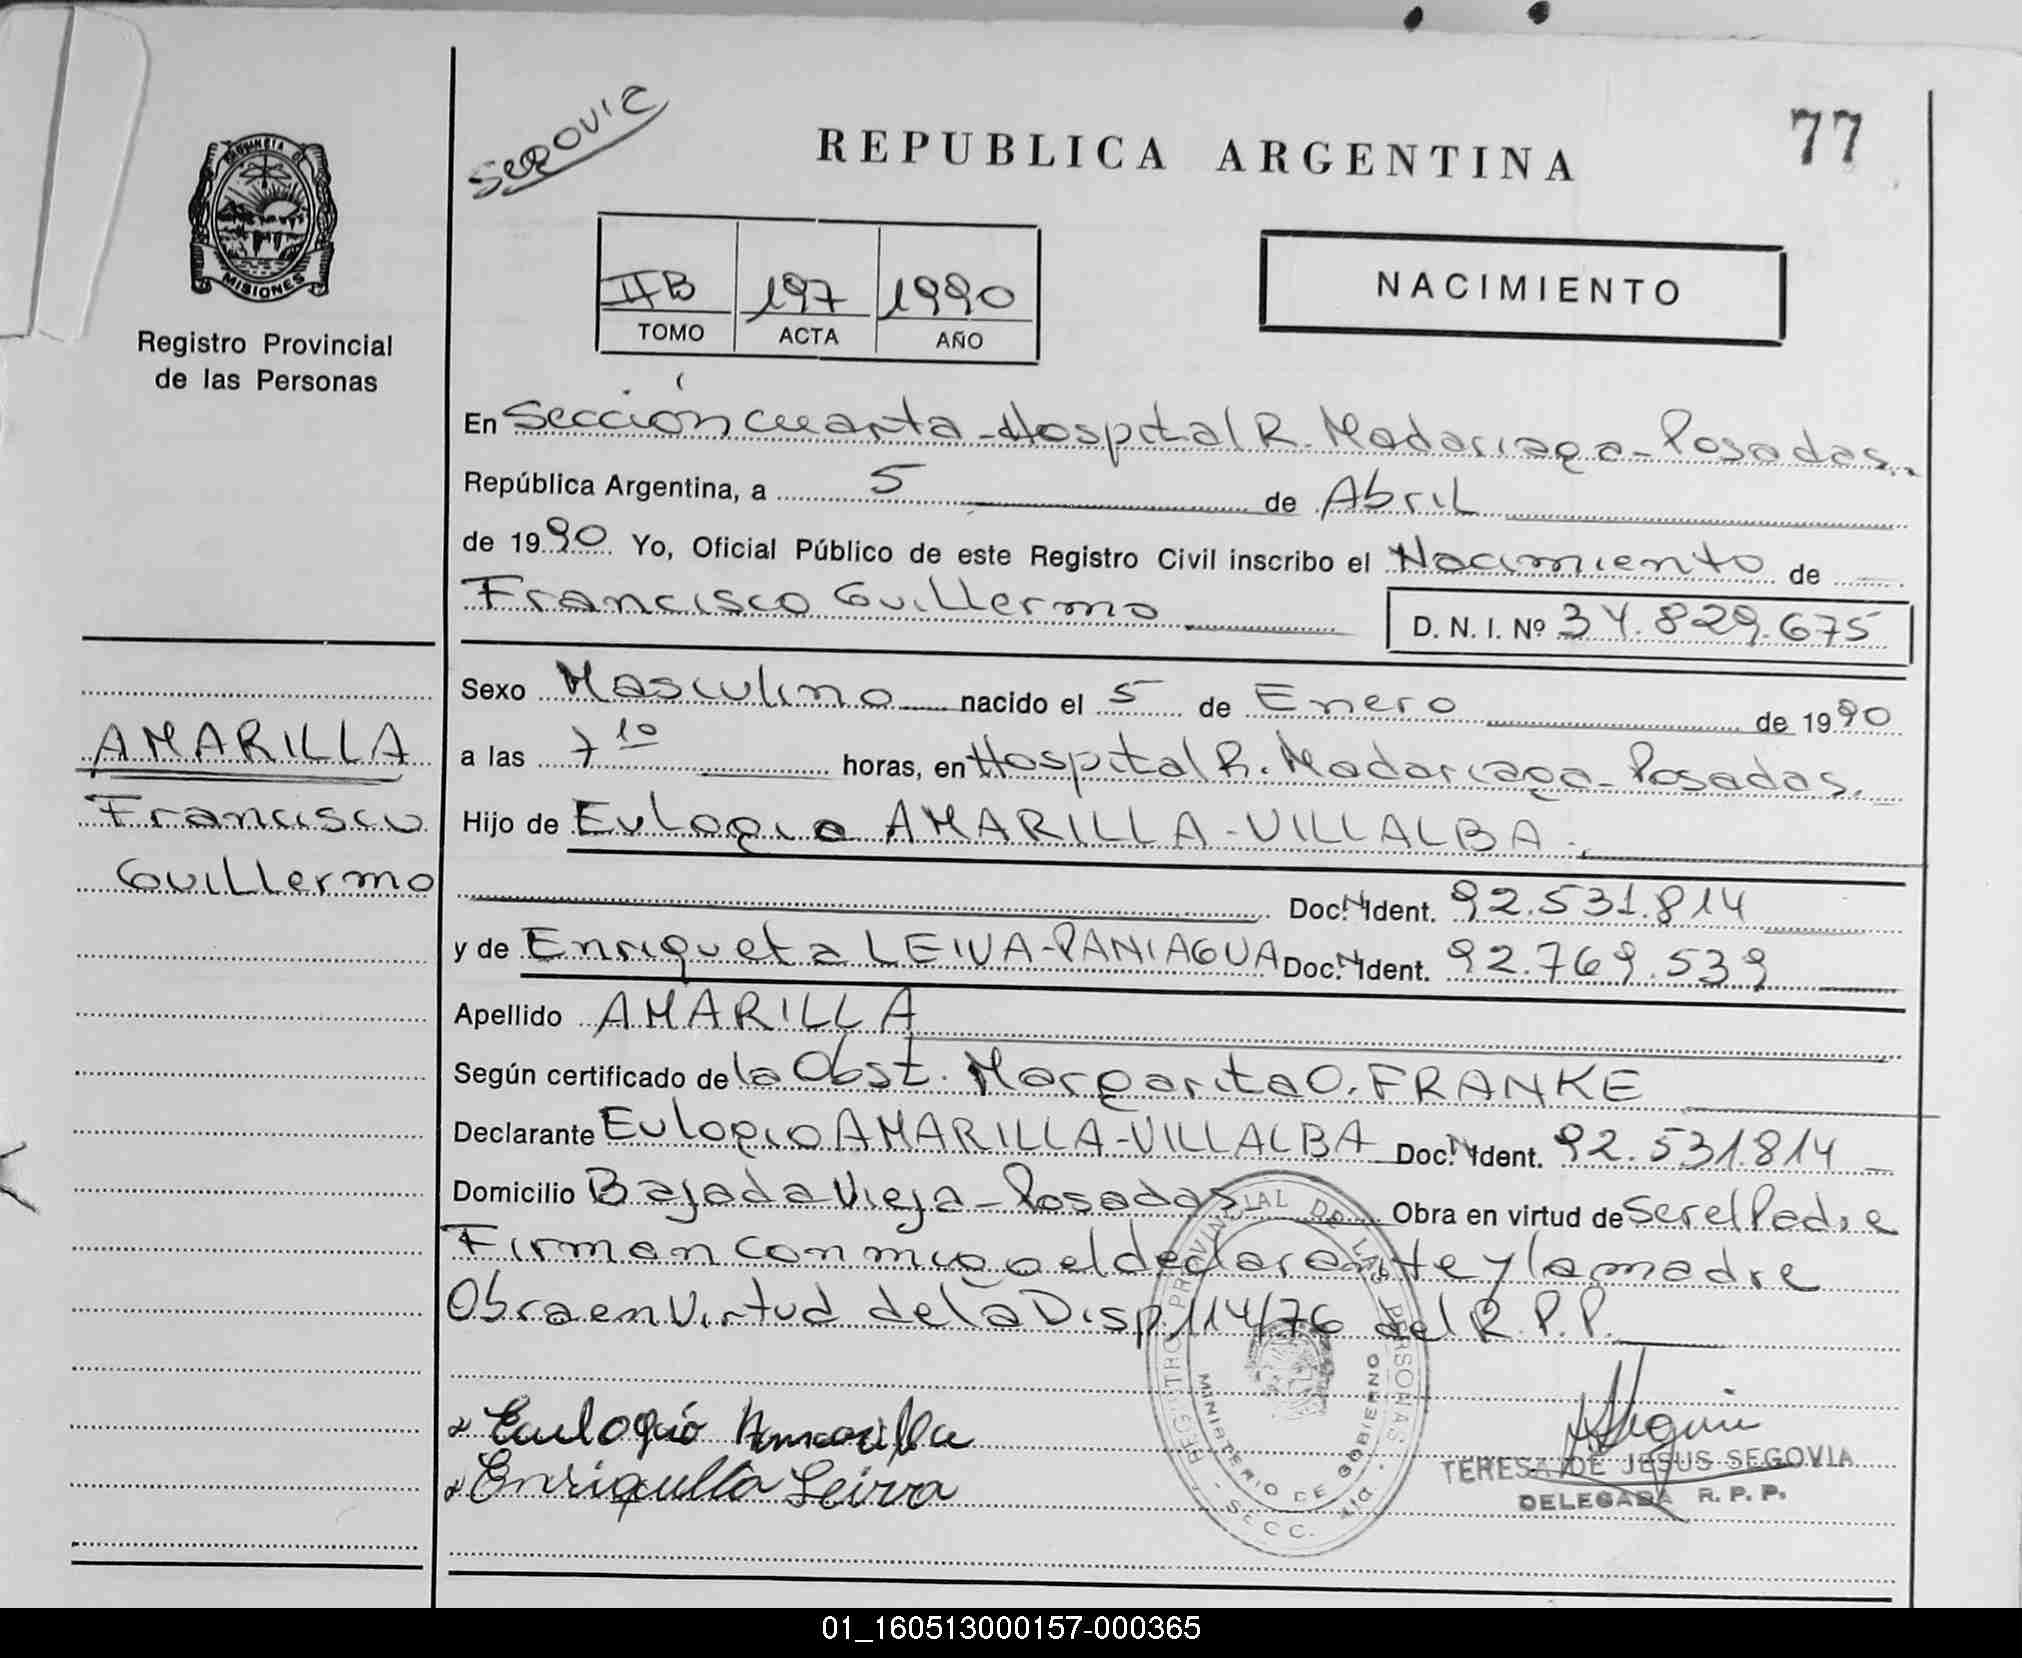 77
REPUBLICA ARGENTINA
PROVINCIA DE
MISIONES
Registro Provincial
de las Personas
NACIMIENTO
IIB 197 1990
TOMO ACTA AÑO
En Sección cuarta - Hospital R. Madariaga - Posadas.
República Argentina, a 5 de Abril
de 1990 Yo, Oficial Público de este Registro Civil inscribo el Nacimiento de
Francisco Guillermo D. N. I. Nº 34.829.675
Sexo Masculino nacido el 5 de Enero de 1990
a las 7 10 horas, en Hospital R. Madariaga - Posadas.
Hijo de Eulogio AMARILLA - VILLALBA.
Doc. N Ident. 92.531.814
y de Enriqueta LEIVA - PANIAGUA Doc. N Ident. 92.769.539
Apellido AMARILLA
Según certificado de la Obst. Margarita O. FRANKE
Declarante Eulogio AMARILLA - VILLALBA Doc. N Ident. 92.531.814
Domicilio Bajada Vieja - Posadas Obra en virtud de Ser el Padre
Firman conmigo el declarante y la madre
Obra en Virtud de la Disp. 114/76 del R.P.P.
AMARILLA
Francisco
Guillermo
Eulogio Amarilla
Enriquetta Leiva
REGISTRO PROVINCIAL DE LAS PERSONAS
MINISTERIO DE GOBIERNO
SECC. 4ta.
TERESA DE JESUS SEGOVIA
DELEGADA R. P. P.
01_160513000157-000365